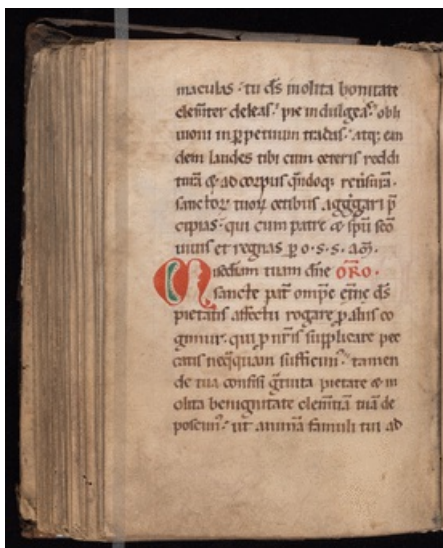 maculas · tu ds̄ inolita bonitate
clem̄ter deleas · pie indulgeas · obli
uioni in ꝑpetuum tradas · atq; ean
dem laudes tibi cum ceteris reddi
turā & ad corpus qn̄doq; reuisurā ·
sanctoꝝ tuoꝝ cetibus aggᵉgari p̄
cipias · qui cum patre & sp̄u sc̄o
uiuis et regnas ꝑ o · s · s · am̄ ·
Misediam tuam dn̄e ORO ·
sancte pat̄ omp̄e et̄ne ds̄
pietatis affectu rogare ꝓ aliis co
gimur · qui ꝓ nr̄is supplicare pec
catis neq̄quam sufficim᷒ · tamen
de tua confisi gᵃtuita pietate & in
olita benignitate clem̄tiā tuā de
poscim᷒ · ut animā famuli tui ad